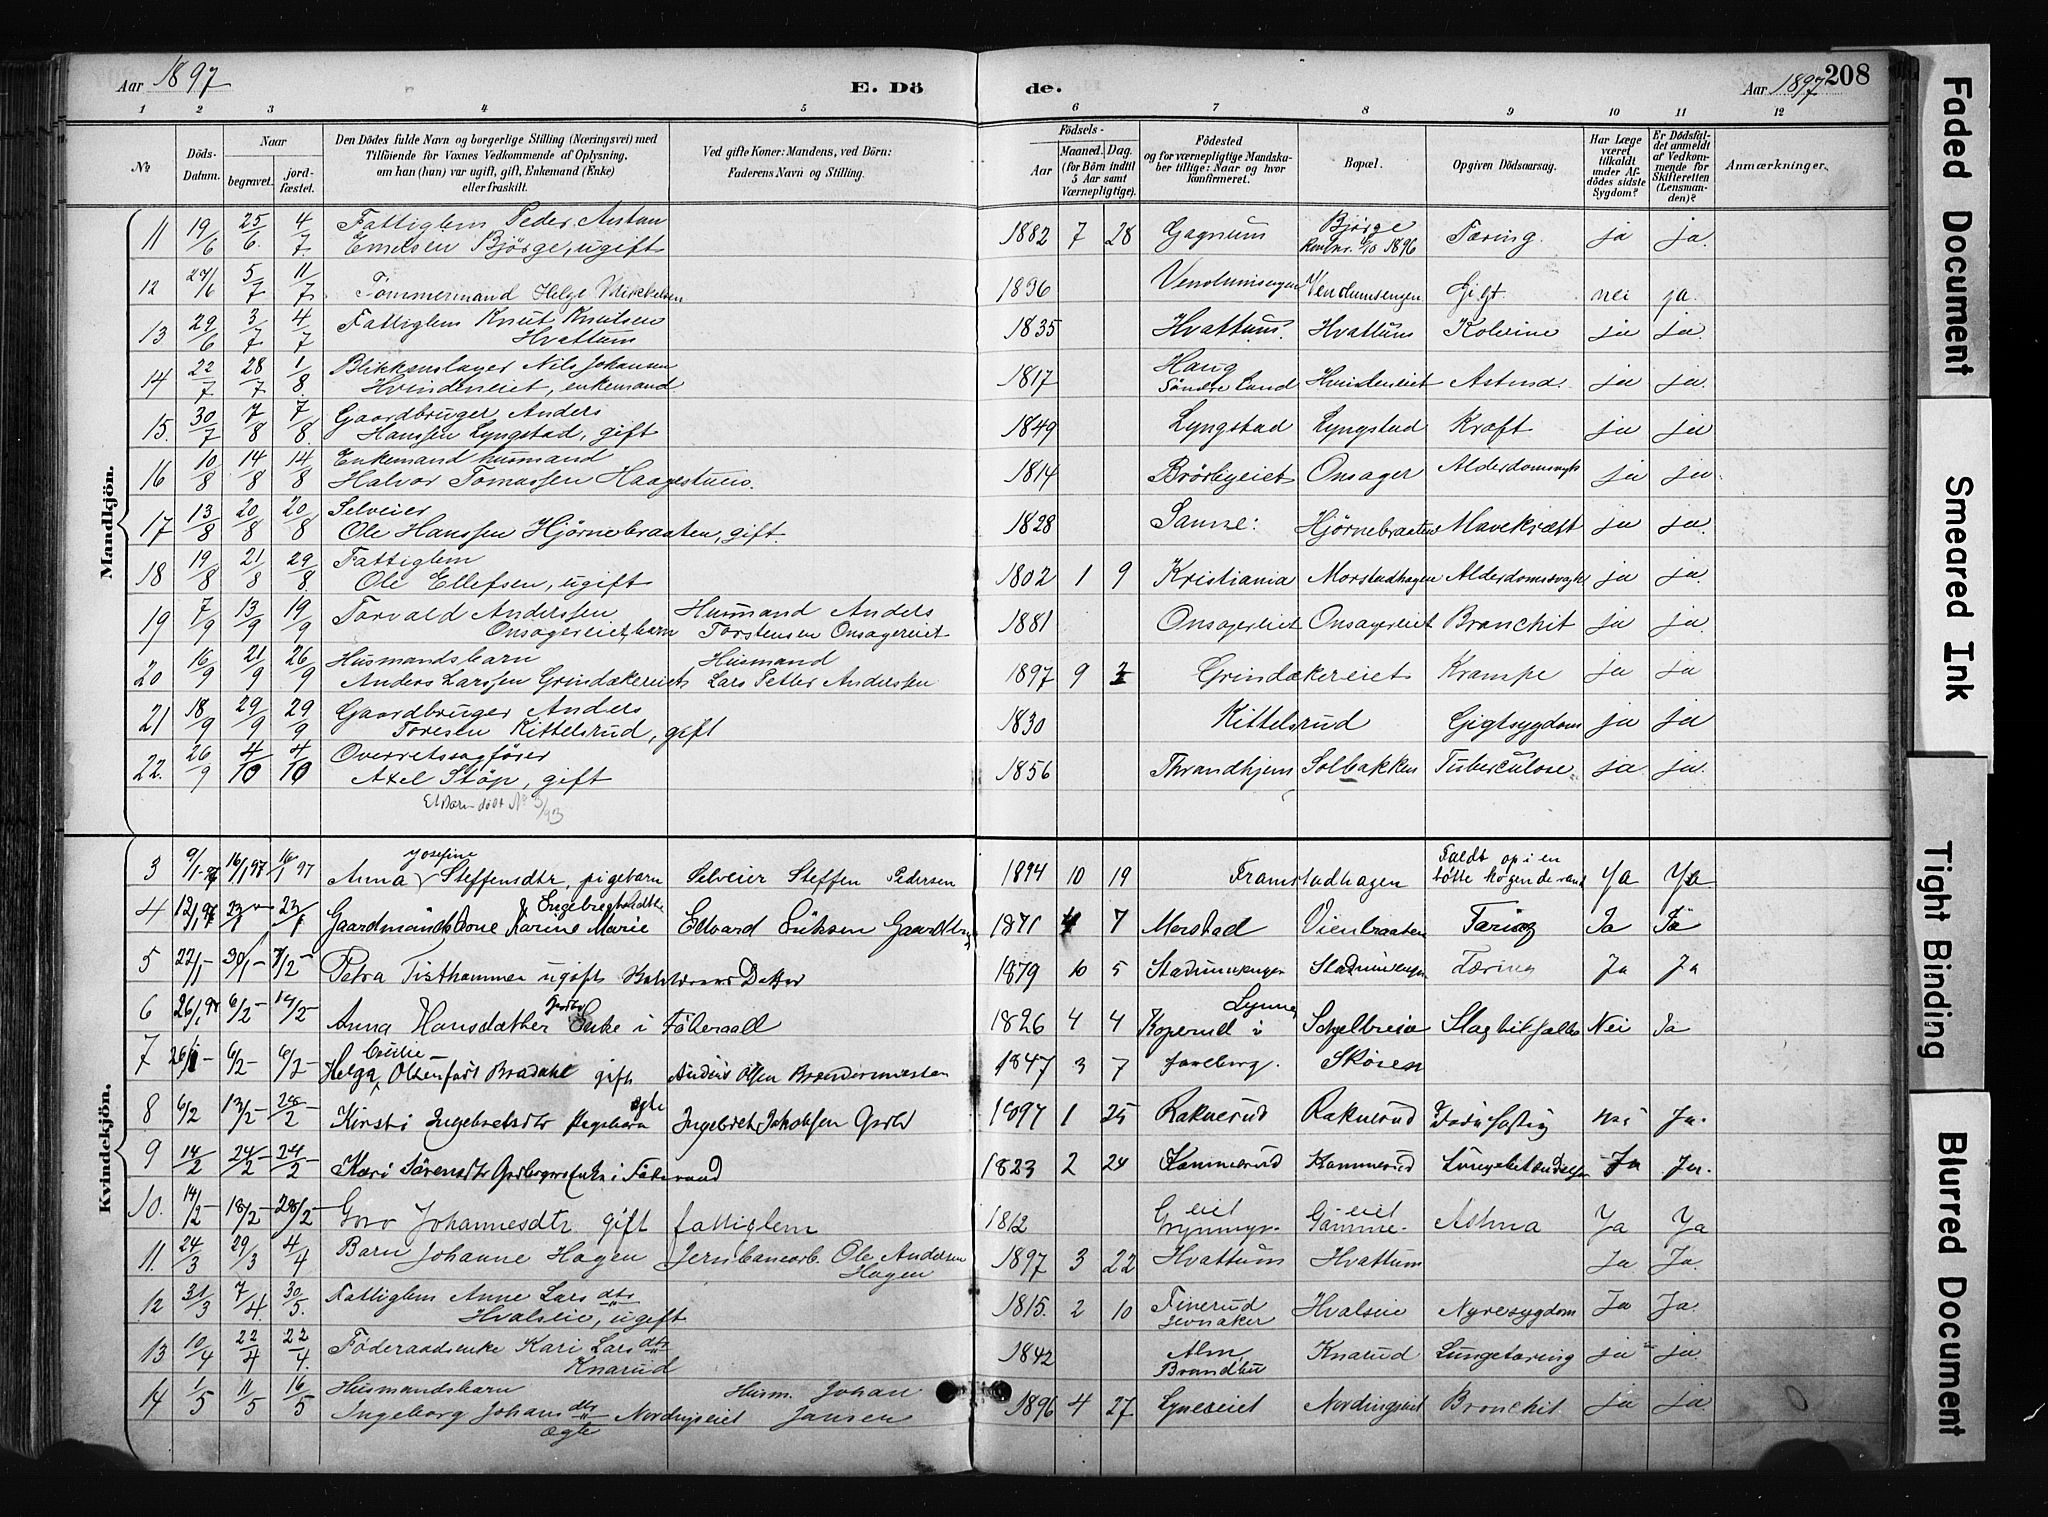 Aar 1897
E. Dö
de.
Aar 1897
208
1 2 3 4 5 6 7 8 9 10 11 12
No
Döds-Datum.
Naar
begravet.
jord-fæstet.
Den Dödes fulde Navn og borgerlige Stilling (Næringsvei) med
Tilföiende for Voxnes Vedkommende af Oplysning,
om han (hun) var ugift, gift, Enkemand (Enke)
eller fraskilt.
Ved gifte Koner: Mandens, ved Börn:
Faderens Navn og Stilling.
Födsels-
Aar
Maaned. Dag.
(for Börn indtil
5 Aar samt
Værnepligtige).
Födested
og for værnepligtige Mandska-
ber tillige: Naar og hvor
konfirmeret.
Bopæl.
Opgiven Dödsaarsag.
Har Læge
været
tilkaldt
under Af-
dödes sidste
Sygdom?
Er Dödsfal-
det anmeldt
af Vedkom-
mende for
Skifteretten
(Lensman-
den)?
Anmærkninger.
Mandkjön.
11 19/6 25/6. 4/7. Fattiglem Peder Anton
Emelsen Bjørge, ugift 1882 7 28 Gagnum Bjørge
1896 Tæring. ja ja.
12 27/6 5/7 11/7 Tømmermand Helge Mikkelsen 1836 Vendumsengen Gigt. nei ja.
13 29/6 3/7 4/7 Fattiglem Knut Knutsen
Hvattum 1835 Hvattum Hvattum Kolerine ja ja.
14 22/7 28/7 1/8. Blikkenslager Nils Johansen
Hvindeneiet, enkemand. 1817 Haug
Søndre Land Hvindeneiet Astma. ja ja.
15. 30/7 7/8 7/8. Gaardbruger Anders
Hanssen Lyngstad, gift 1849 Lyngstad Lyngstad Kræft ja ja
16 10/8 14/8 14/8 Enkemand husmand
Halvor Tomassen Haagestuen. 1814 Brørbyeiet Onsager Alderdomssvagh ja ja.
17 13/8 20/8 20/8 Selveier
Ole Hanssen Hjørnebraaten, gift. 1828 Sanne: Hjørnebraaten Mavekræft ja ja.
18 19/8 21/8 29/8. Fattiglem
Ole Ellefsen, ugift 1802 1 9 Kristiania Morstadhagen Alderdomssvagh ja ja.
19 7/9 13/9 19/9 Torvald Anderssen
Onsagereiet, barn Husmand Anders
Torstensen Onsagereiet 1881 Onsagereiet Onsagereiet Bronchit ja ja.
20 16/9 21/9 26/9 Husmandsbarn
Anders Larssen Grindakereiet Husmand
Lars Petter Anderssen 1897 9 2 Grindakereiet Krampe ja ja
21 18/9 29/9 29/9 Gaardbruger Anders
Toresen Kittelsrud, gift 1830 Kittelsrud Gigtsygdom ja ja
22. 26/9 4/10 4/10 Overretssagfører
Axel Støp, gift 1856 Thrandhjem Solbakken Tuberculose ja ja.
Et barn dødt No 3/93
Kvindekjön.
3 9/1-97 16/1 97 16/1 97 Anna Josefine Steffensdtr, pigebarn Selveier Steffen Pedersen 1894 10 19 Framstadhagen Faldt op i en
bøtte kogende vand Ja Ja
4 12/1 97 23/1 23/1 Gaardmandskone Karine Marie Engebregtsdatter Edvard Eriksen Gaardbr 1871 4 7 Morstad Vienbraaten Tæring Ja Ja
5 22/1 30/1- 7/2- Petra Tisthammer ugift Datter 1879 10 5 Stadumsengen Stadumsengen Tæring Ja Ja
6 26/1 97 6/2- 14/2- Anna Hansdatter Enke i Føderaad 1826 4 4 Koperud i Lynne Schjelbreia Slagtilfælde Nei Ja
7 26/1- 6/2- 6/2- Helga Cecilie Olsen født Bradahl gift Anders Olsen Brændermester 1847 3 7 Jareberg. Skøien
8 6/2 13/2- 28/2- Kirsti Ingebretsdtr Pigebarn ægte Ingebret Jakobsen Grdbr 1897 1 25 Raknerud Raknerud nei Ja.
9 14/2 24/2- 24/2- Kari Sørensdtr Enke i Føderaad 1823 2 24 Kammerud Kammerud Lungebetændelse Ja Ja.
10. 14/2- 18/2- 28/2- Goro Johannesdtr gift fattiglem 1812 Grynnys-eiet Gamme-eiet Astma Ja Ja
11. 24/3 29/3 4/4 Barn Johanne Hagen Jernbanearb. Ole Andersen
Hagen 1897 3 22 Hvattum Hvattum Ja Ja.
12 31/3 7/4. 30/5. Fattiglem Anne Larsdtr
Hvalseie, ugift 1815. 2 10 Finerud
Jevnaker Hvalseie Nyresygdom Ja Ja.
13 10/4 22/4 22/4. Føderaadsenke Kari Larsdtr
Knarud 1842 Alm
Brandbu Knarud Lungetæring ja ja.
14 1/5 11/5 16/5 Husmandsbarn
Ingeborg Johansdtr Nordingseiet
ægte Husm. Johan
Jansen 1896 4 27 Lyneseiet Nordingseiet Bronchit ja ja.
Faded Document
Smeared Ink
Tight Binding
Blurred Document